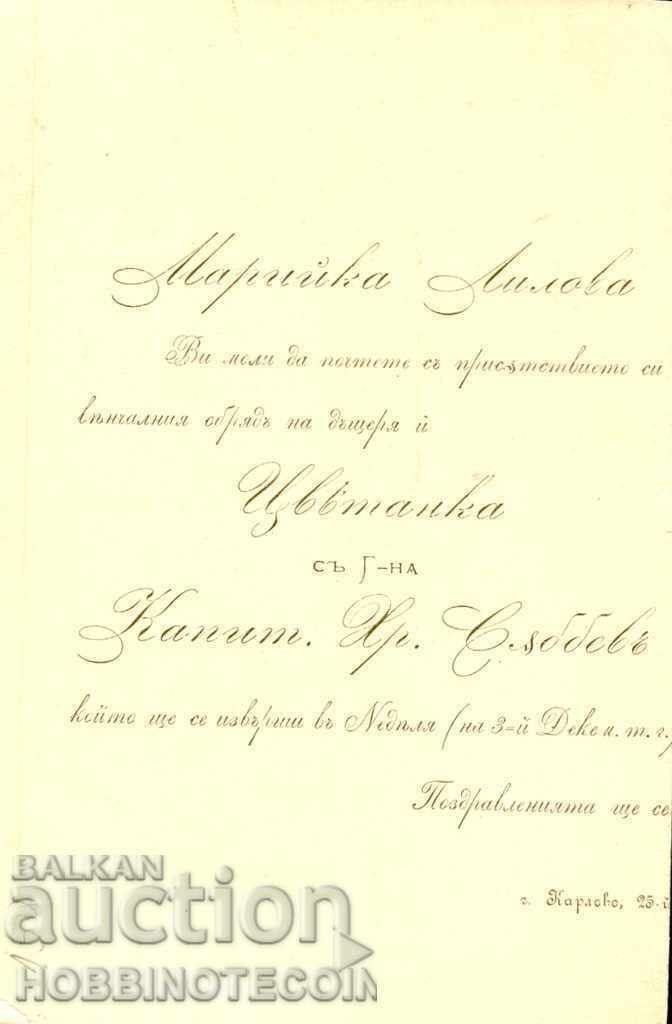 Марийка Лилова
Ви моли да почтете съ присѫтствието си
вѣнчалния обрядъ на дъщеря ѝ
Цвѣтанка
СЪ Г-НА
Капит. Хр. Сѫббевъ
който ще се извърши въ Недѣля (на 3=й Декем. т. г.)
Поздравленията ще се
г. Карлово, 25-й
BALKAN
auction
HOBBINOTECOIN